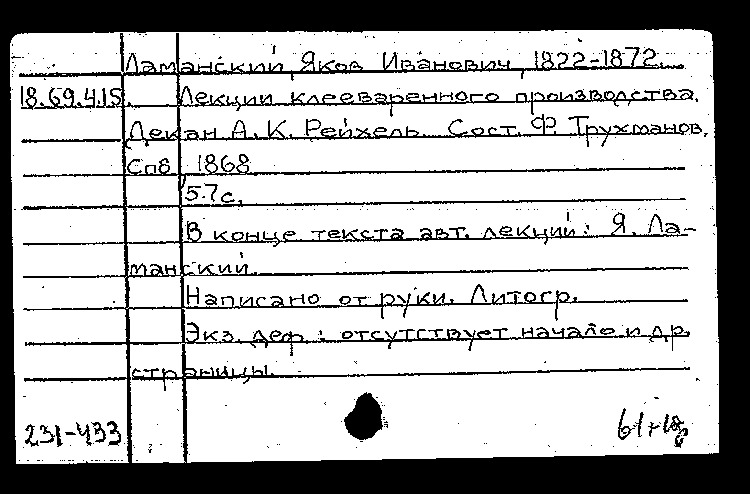 Ламанский, Яков Иванович, 1822-1872.
18.69.4.15. Лекции клееваренного производства.
Декан А. К. Рейхель. Сост. Ф. Трухманов.
Спб, 1868
57с.
В конце текста авт. лекций: Я. Ла-
манский.
Написано от руки. Литогр.
Экз. деф.: отсутствует начало и др.
страницы.
231-433